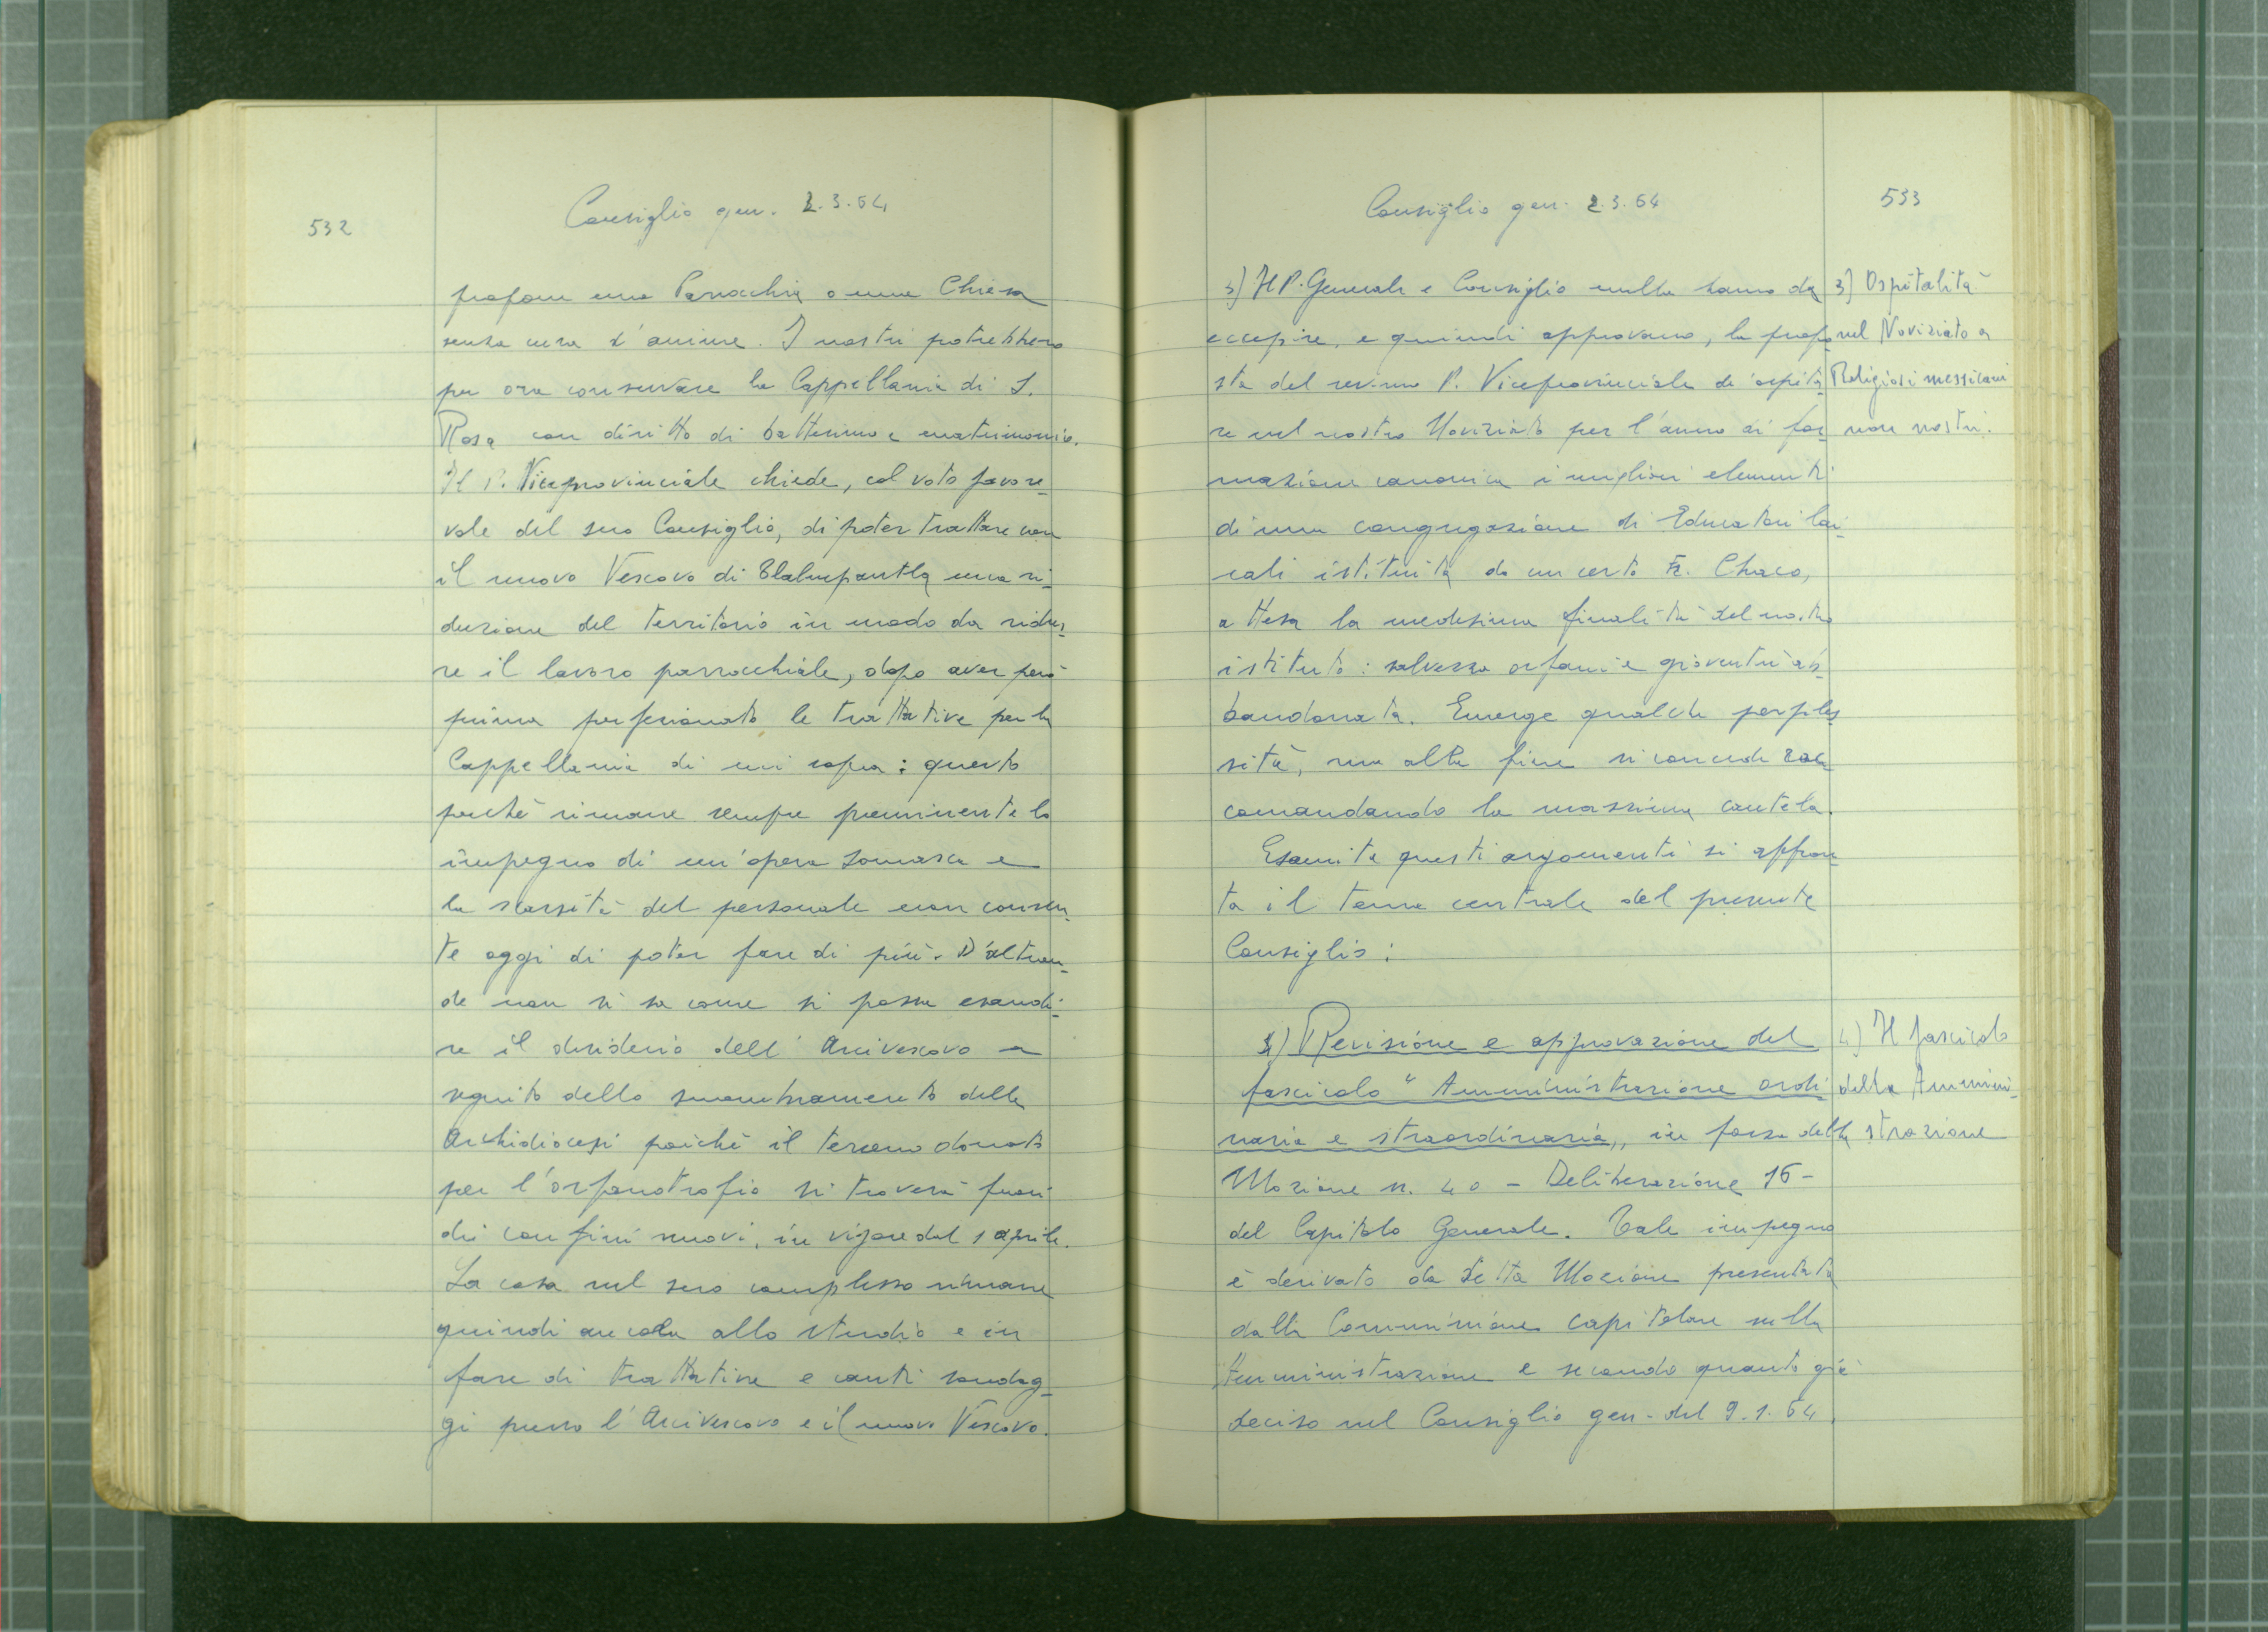 532
Consiglio gen. 2.3.64
propone una Parrocchia o una Chiesa
senza cura d'anime. I nostri potrebbero
per ora conservare la Cappellania di S.
Rosa con diritto di battesimo e matrimonio.
Il P. Viceprovinciale chiede, col voto favore-
vole del suo Consiglio, di poter trattare con
il nuovo Vescovo di Tlalnepantla una ri-
duzione del territorio in modo da ridur-
re il lavoro parrocchiale, dopo aver però
prima perfezionato le trattative per la
Cappellania di cui sopra: questo
perché rimane sempre preminente lo
impegno di un'opera somasca e
la scarsità del personale non consen-
te oggi di poter fare di più. D'altron-
de non si sa come si possa esaudi-
re il desiderio dell'Arcivescovo a
seguito dello smembramento della
Archidiocesi poiché il terreno donato
per l'orfanotrofio si troverà fuori
dei confini nuovi, in vigore dal 1 aprile.
La cosa nel suo complesso rimane
quindi ancora allo studio e in
fase di trattative e cauti sondag-
gi presso l'Arcivescovo e il nuovo Vescovo.
Consiglio gen. 2.3.64
533
3) Il P. Generale e Consiglio nulla hanno da
eccepire, e quindi approvano, la propo-
sta del rev.mo P. Viceprovinciale di ospita-
re nel nostro Noviziato per l'anno di for-
mazione canonica i migliori elementi
di una congregazione di Educatori lai-
cali istituita da un certo Fr. Chaco,
attesa la medesima finalità del nostro
istituto: salvezza orfani e gioventù ab-
bandonata. Emerge qualche perples-
sità, ma alla fine si concede rac-
comandando la massima cautela.
Esauriti questi argomenti si affron-
ta il tema centrale del presente
Consiglio:
4) Revisione e approvazione del
fascicolo "Amministrazione ordi-
naria e straordinaria,, in forza della
Mozione n. 40 - Deliberazione 16 -
del Capitolo Generale. Tale impegno
è derivato da detta Mozione presentata
dalla Commissione capitolare sulla
Amministrazione e secondo quanto già
deciso nel Consiglio gen. del 9.1.64.
3) Ospitalità
nel Noviziato a
Religiosi messicani
non nostri.
4) Il fascicolo
della Ammini-
strazione